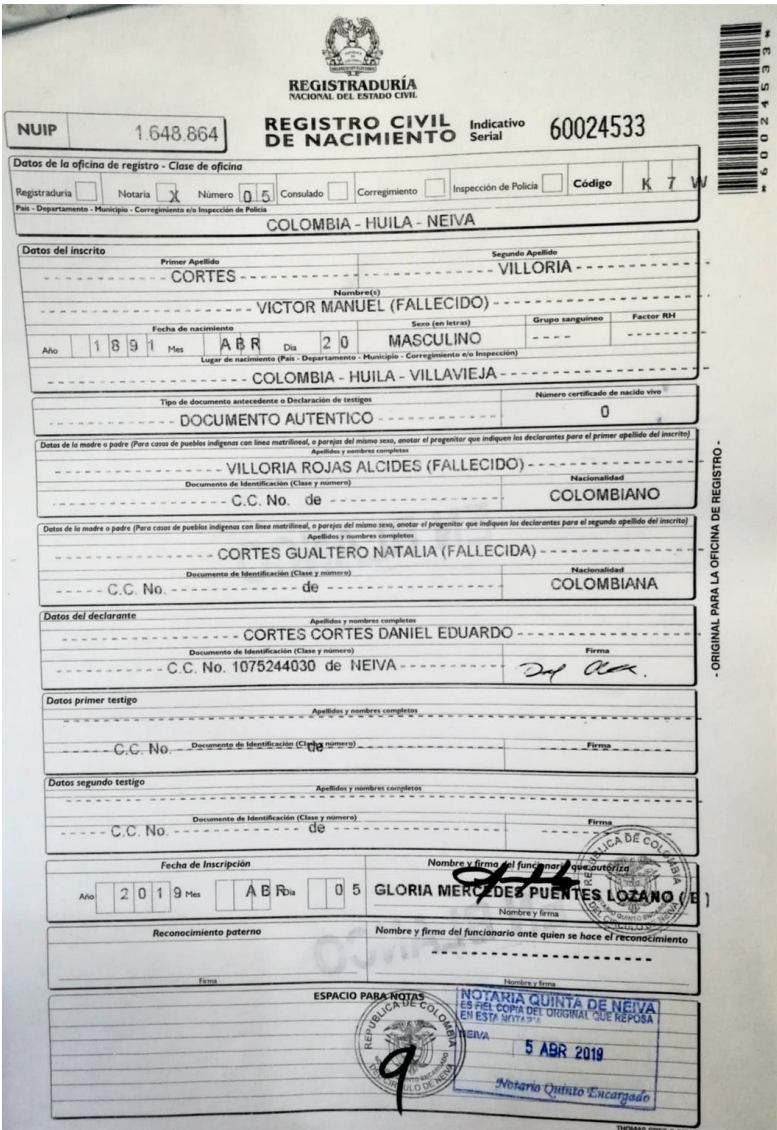 REGISTRADURÍA
NACIONAL DEL ESTADO CIVIL
NUIP 1.648.864
REGISTRO CIVIL DE NACIMIENTO
Indicativo Serial 60024533
*60024533*
Datos de la oficina de registro - Clase de oficina
Registraduría Notaría X Número 0 5 Consulado Corregimiento Inspección de Policía Código K 7 W
País - Departamento - Municipio - Corregimiento e/o Inspección de Policía
COLOMBIA - HUILA - NEIVA
Datos del inscrito
Primer Apellido Segundo Apellido
CORTES VILLORIA
Nombre(s)
VICTOR MANUEL (FALLECIDO)
Fecha de nacimiento Sexo (en letras) Grupo sanguíneo Factor RH
Año 1 8 9 1 Mes A B R Día 2 0 MASCULINO
Lugar de nacimiento (País - Departamento - Municipio - Corregimiento e/o Inspección)
COLOMBIA - HUILA - VILLAVIEJA
Tipo de documento antecedente o Declaración de testigos Número certificado de nacido vivo
DOCUMENTO AUTENTICO 0
Datos de la madre o padre (Para casos de pueblos indígenas con línea matrilineal, o parejas del mismo sexo, anotar el progenitor que indiquen los declarantes para el primer apellido del inscrito)
Apellidos y nombres completos
VILLORIA ROJAS ALCIDES (FALLECIDO)
Documento de Identificación (Clase y número) Nacionalidad
C.C. No. de COLOMBIANO
Datos de la madre o padre (Para casos de pueblos indígenas con línea matrilineal, o parejas del mismo sexo, anotar el progenitor que indiquen los declarantes para el segundo apellido del inscrito)
Apellidos y nombres completos
CORTES GUALTERO NATALIA (FALLECIDA)
Documento de Identificación (Clase y número) Nacionalidad
C.C. No. de COLOMBIANA
Datos del declarante
Apellidos y nombres completos
CORTES CORTES DANIEL EDUARDO
Documento de Identificación (Clase y número) Firma
C.C. No. 1075244030 de NEIVA
Datos primer testigo
Apellidos y nombres completos
Documento de Identificación (Clase y número) Firma
C.C. No. de
Datos segundo testigo
Apellidos y nombres completos
Documento de Identificación (Clase y número) Firma
C.C. No. de
Fecha de Inscripción Nombre y firma del funcionario que autoriza
Año 2 0 1 9 Mes A B R Día 0 5 GLORIA MERCEDES PUENTES LOZANO (E)
Nombre y firma
REPUBLICA DE COLOMBIA
NOTARIO QUINTO ENCARGADO
DEL CIRCULO DE NEIVA
Reconocimiento paterno Nombre y firma del funcionario ante quien se hace el reconocimiento
Firma Nombre y firma
ESPACIO PARA NOTAS
REPUBLICA DE COLOMBIA
NOTARIO QUINTO ENCARGADO
DEL CIRCULO DE NEIVA
NOTARIA QUINTA DE NEIVA
ES FIEL COPIA DEL ORIGINAL QUE REPOSA
EN ESTA NOTARIA
NEIVA
5 ABR 2019
Notario Quinto Encargado
- ORIGINAL PARA LA OFICINA DE REGISTRO -